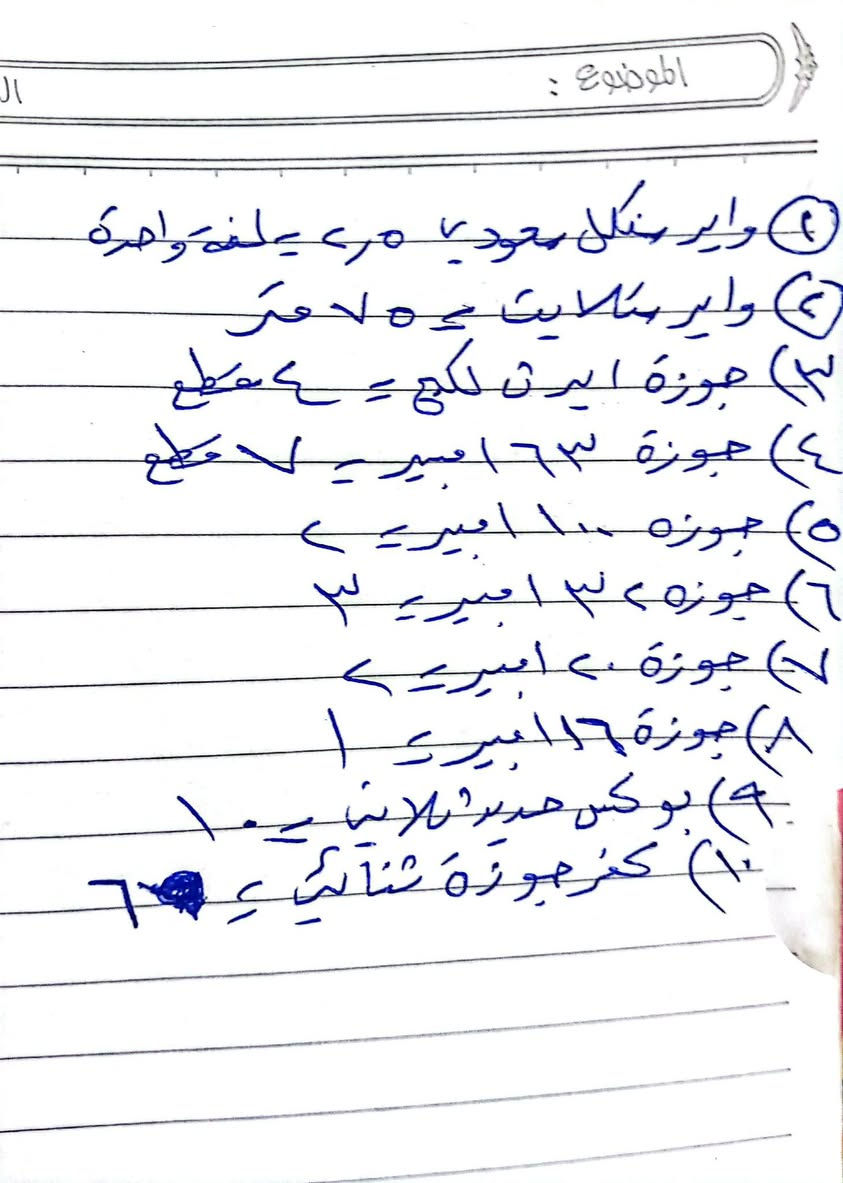 الموضوع :
ال
١) واير سنكل سعودي ٢,٥ = لفة واحدة
٢) واير ستلايت = ٧٥ متر
٣) جوزة ايرث لكج = ٤ قطع
٤) جوزة ٦٣ امبير = ٧ قطع
٥) جوزه ١٠٠ امبير = ٢
٦) جوزه ٣٢ امبير = ٣
٧) جوزة ٢٠ امبير = ٢
٨) جوزة ١٦ امبير = ١
٩) بوكس حديد ثلاثي = ١٠
١٠) كفر جوزة ثنائي = ٦